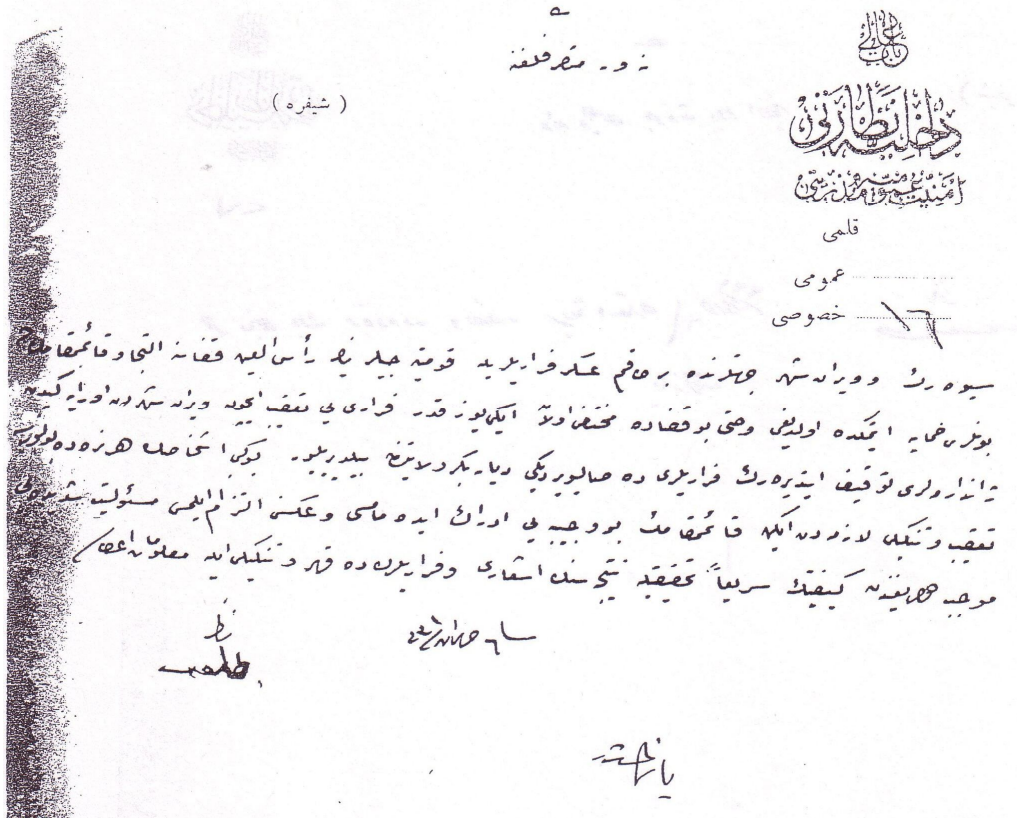 باب عالی
داخلیه نظارتی
امنیت عمومیه مدیریتی
قلمی
عمومی
خصوصی ١٦
زور متصرفلغنه
( شیفره )
سیوه رك و ویران شهر جهتلرنده بر طاقم عسكر فراریلریله قومیته جیلرینك رأس العین قضاسنه التجا و قائمقامك
بونلری حمایه ایتمكده اولدیغی وحتی بو قضاده مختفی اولان ایكیوز قدر فراری یی تعقیب ایچون ویران شهردن اورایه كیدن
ژاندارمه لری توقیف ایتدیره رك فراریلری ده صالیویردیكی دیاربكر ولایتندن بیلدیریلیور بوكبی اشخاصك هر نره ده بولنورسه
تعقیب و تنكیلی لازمه دن ایكن قائمقامك بو وجیبه یی ادراك ایده مامسی و عكسنی التزام ایلمسی مسئولیت شدیده یی
موجب كیفیتك سریعاً تحقیقیله نتیجه سنك اشعاری وفراریلرك ده قهر و تنكیلی ایله معلومات اعطاسی
ناظر
طلعت
یازلمشدر